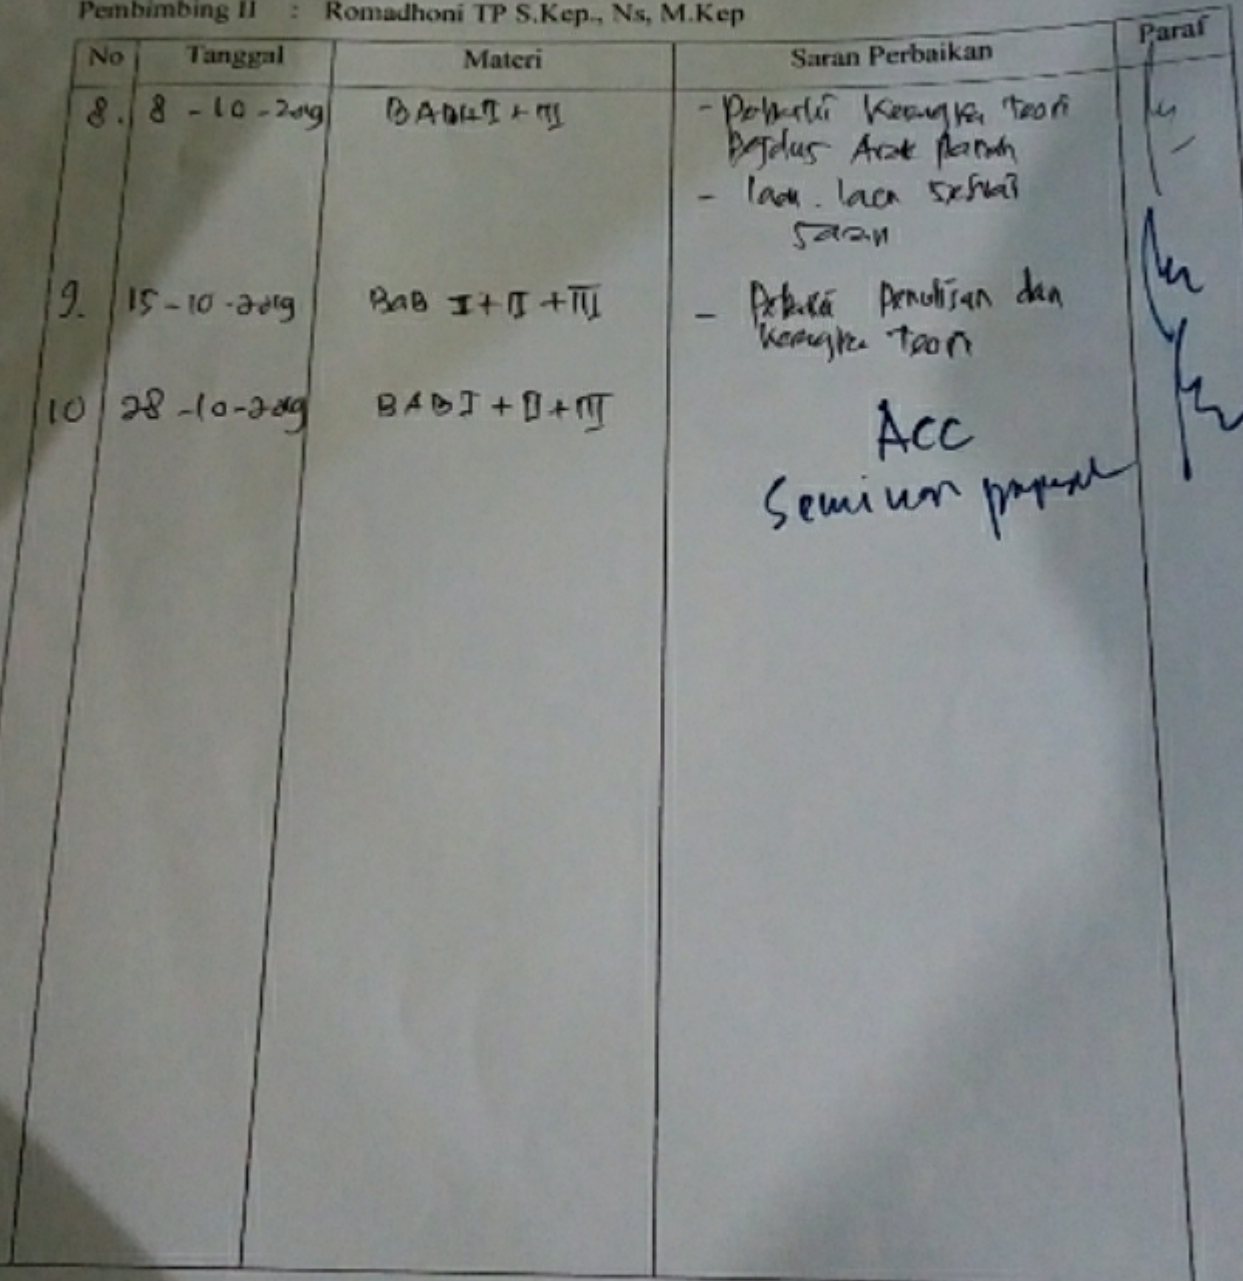 Pembimbing II : Romadhoni TP S.Kep., Ns, M.Kep
No Tanggal Materi Saran Perbaikan Paraf
8. 8 - 10 - 2019 BAB I + III - Kerangka teori
Arah Panah
- lain. lain sesuai
saran
9. 15 - 10 - 2019 BAB I + II + III - Penulisan dan
Kerangka Teori
10 28 - 10 - 2019 BAB I + II + III ACC
Seminar proposal